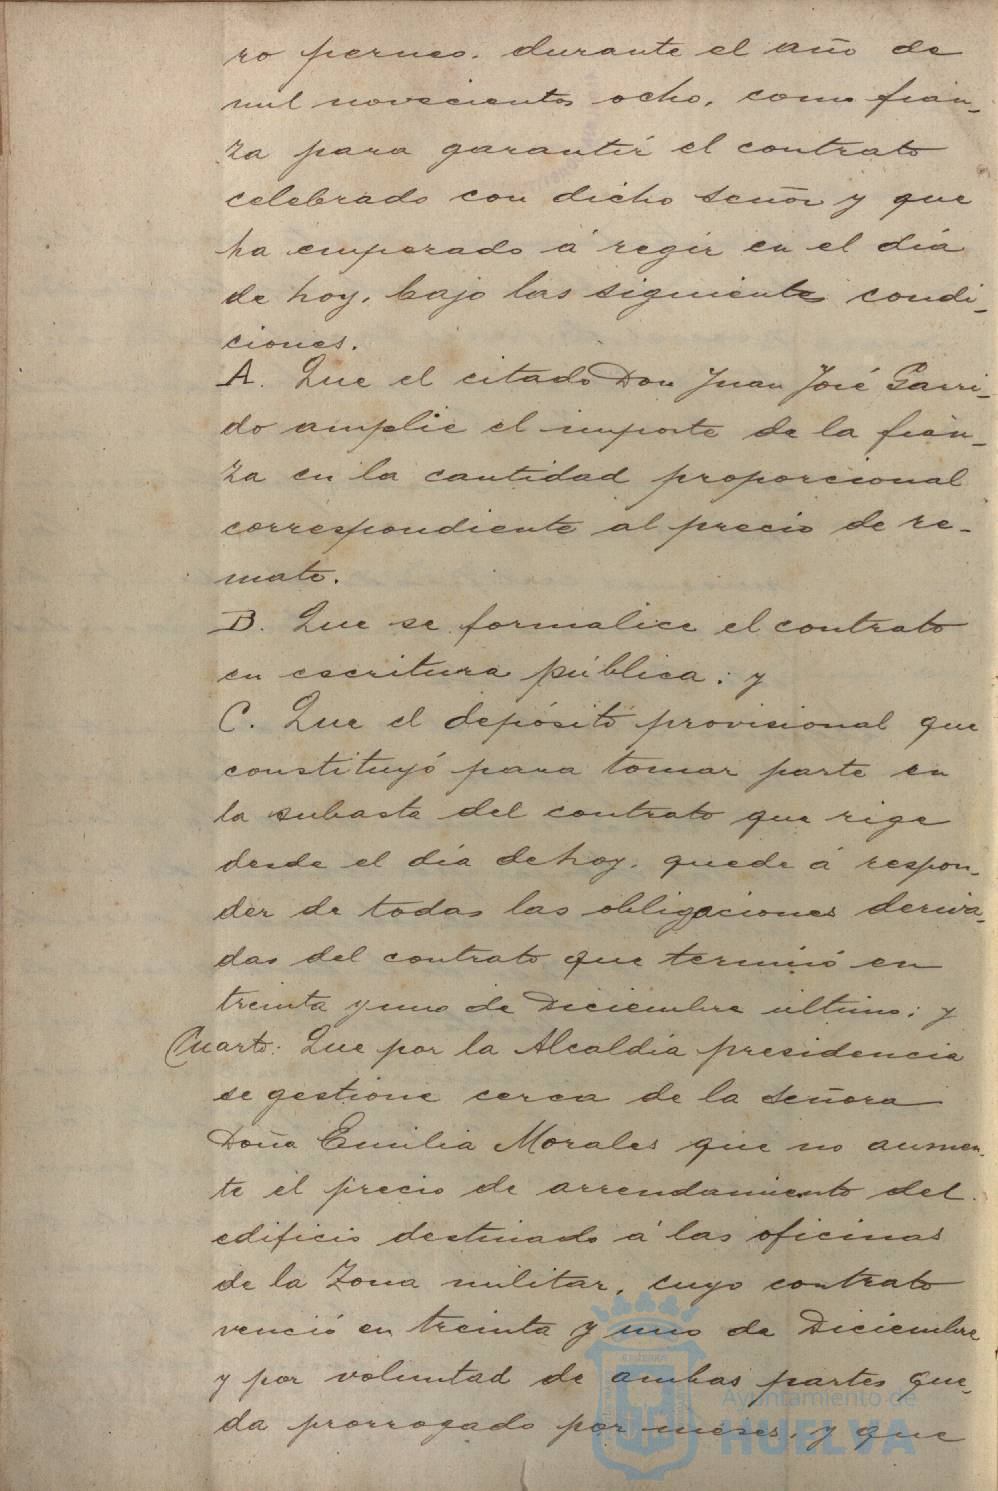 ro perneo, durante el año de
mil novecientos ocho, como fian-
za para garantir el contrato
celebrado con dicho señor y que
ha emperado á regir en el día
de hoy, bajo las siguientes condi-
ciones.
A. Que el citado Don Juan José Garri-
do amplie el importe de la fian-
za en la cantidad proporcional
correspondiente al precio de re-
mate.
B. Que se formalice el contrato
en escritura pública; y
C. Que el depósito provisional que
constituyó para tomar parte en
la subasta del contrato que rige
desde el día de hoy, quede á respon-
der de todas las obligaciones deriva-
das del contrato que terminó en
treinta y uno de Diciembre último; y
Cuarto: Que por la Alcaldía presidencia
se gestione cerca de la Señora
Doña Emilia Morales que no aumen-
te el precio de arrendamiento del
edificio destinado á las oficinas
de la Zona militar, cuyo contrato
venció en treinta y uno de Diciembre
y por voluntad de ambas partes que-
da prorrogado por meses, y que
Ayuntamiento de
HUELVA